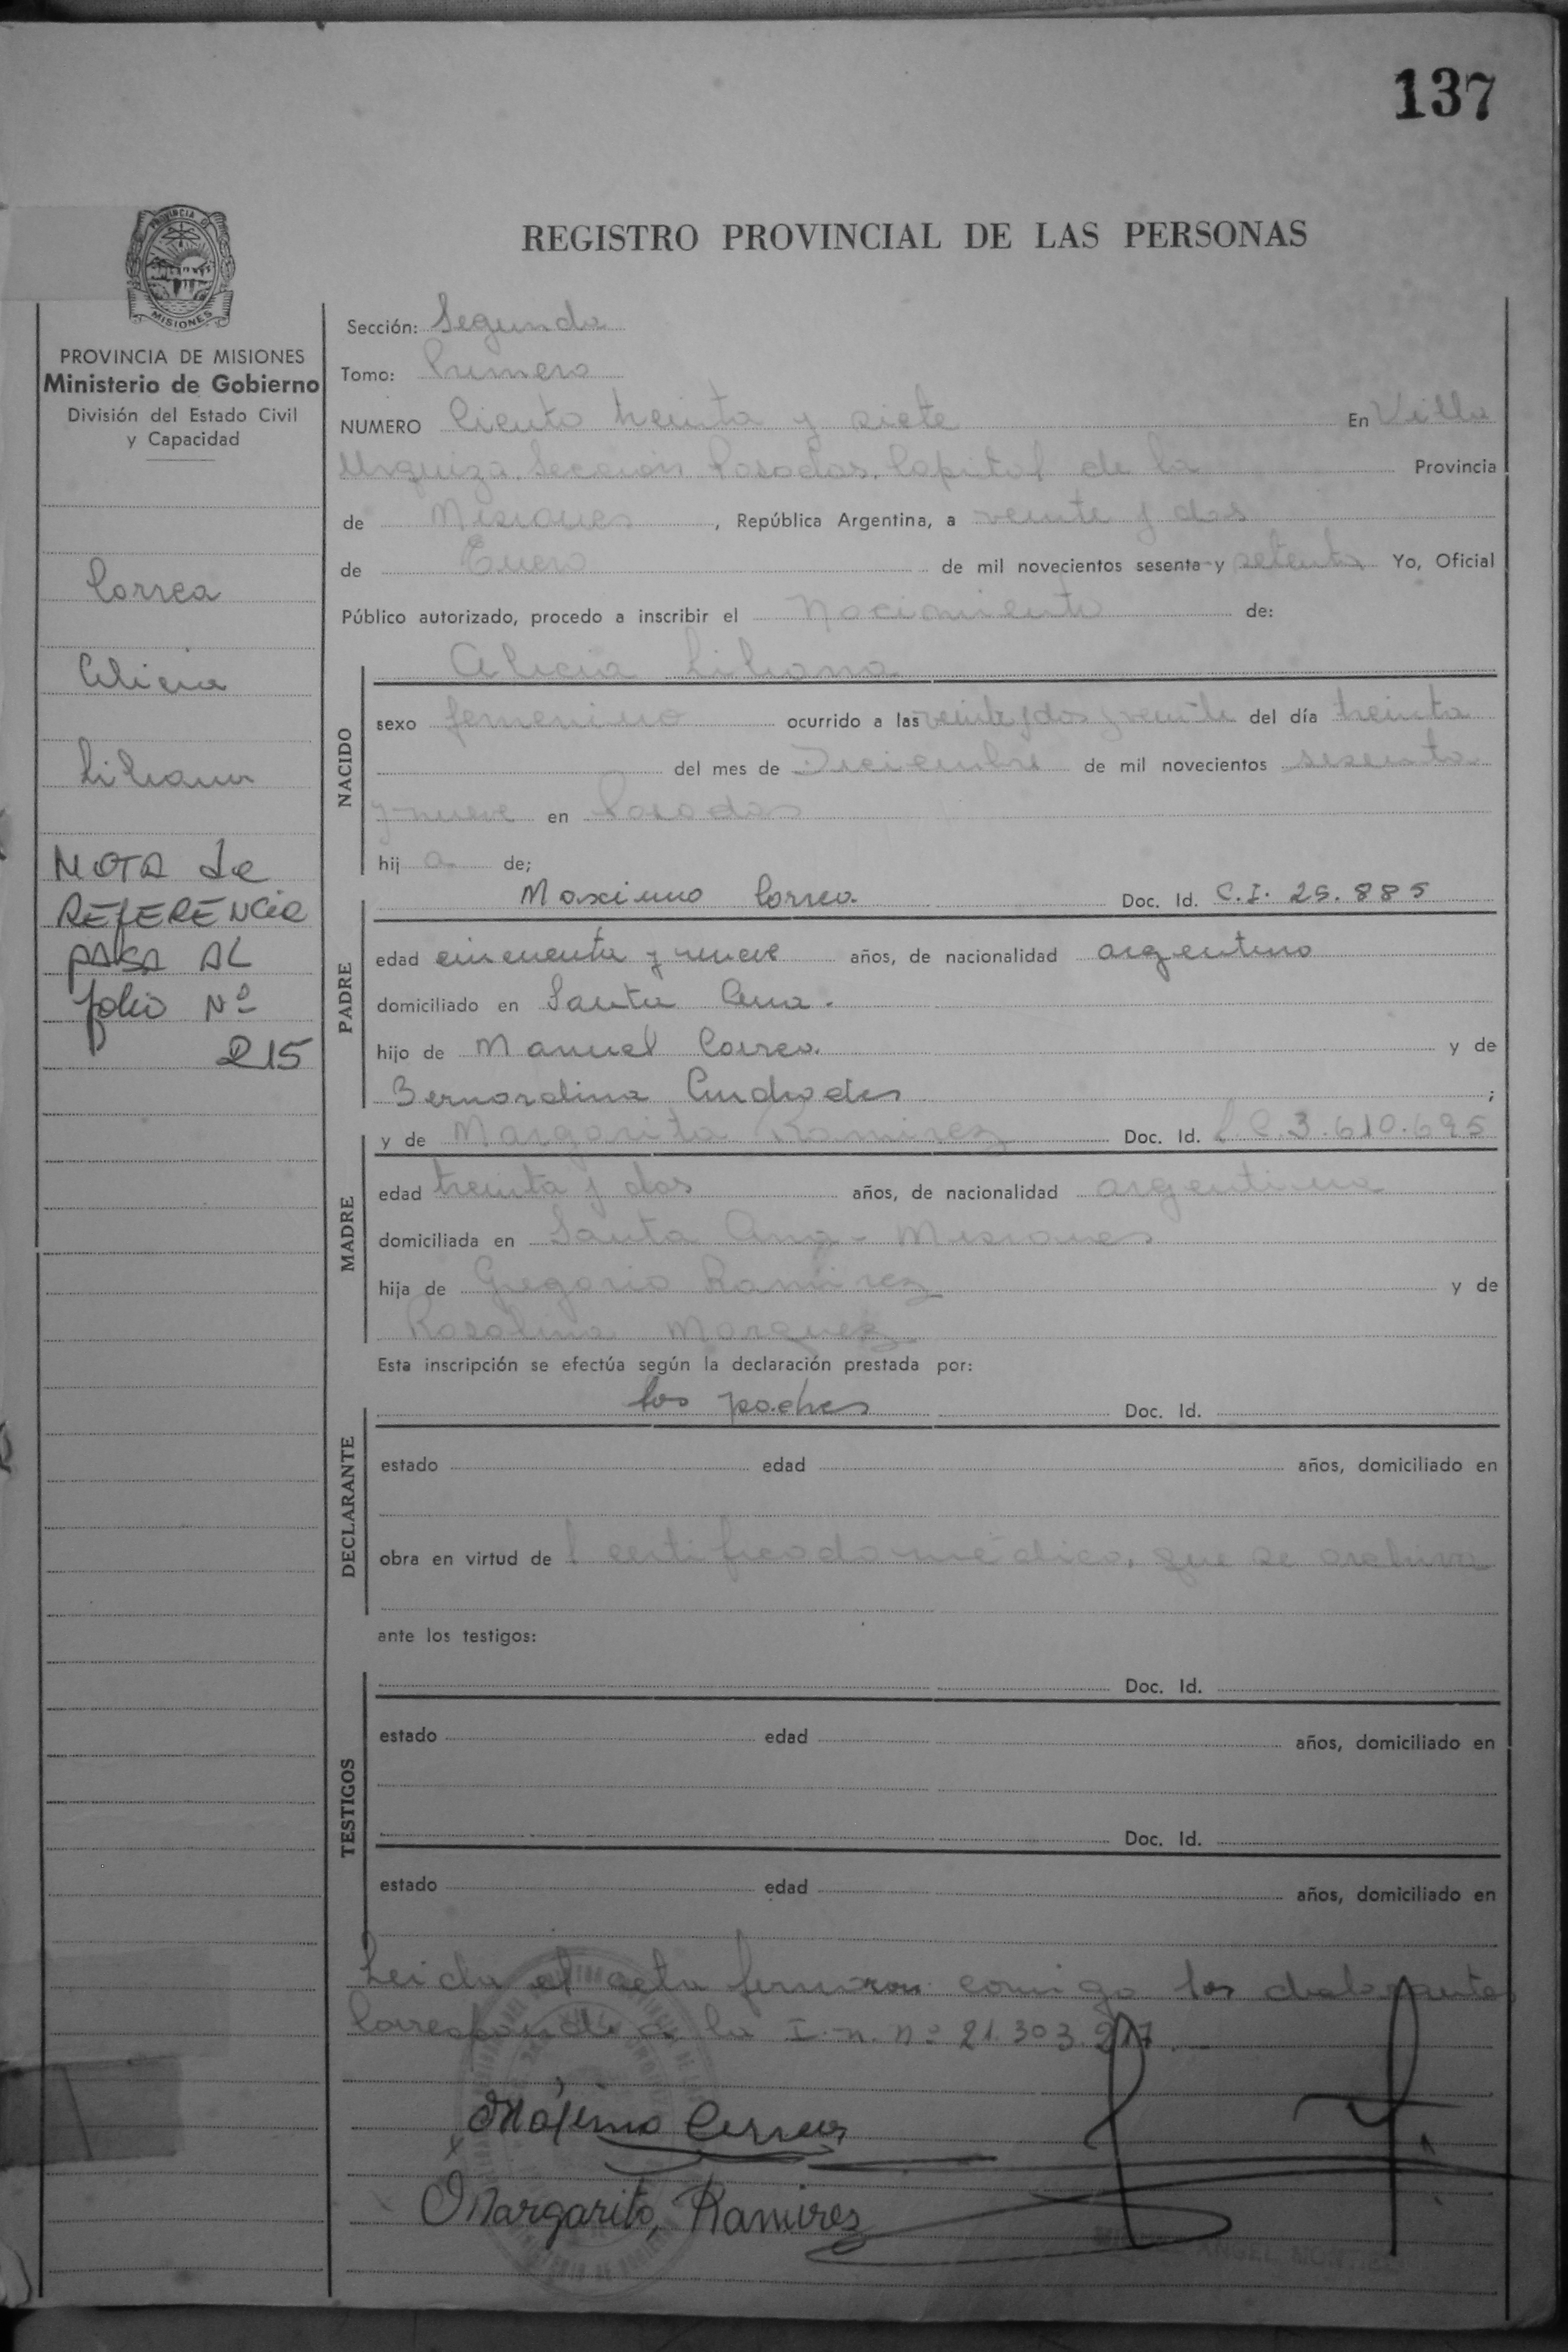 137
PROVINCIA DE
MISIONES
REGISTRO PROVINCIAL DE LAS PERSONAS
PROVINCIA DE MISIONES
Ministerio de Gobierno
División del Estado Civil
y Capacidad
Correa
Alicia
Liliana
NOTA de
REFERENCIA
PASA AL
folio Nº
215
Sección: Segunda
Tomo: Primero
NUMERO Ciento treinta y siete En Villa
Urquiza, Sección Posadas, Capital de la Provincia
de Misiones, República Argentina, a veinte y dos
de Enero de mil novecientos sesenta y setenta Yo, Oficial
Público autorizado, procedo a inscribir el Nacimiento de:
Alicia Liliana
NACIDO
sexo femenino ocurrido a las veinte y dos y veinte del día treinta
del mes de Diciembre de mil novecientos sesenta
y nueve en Posadas
hij a de;
Maximo Correa Doc. Id. C.I. 25.885
PADRE
edad cincuenta y nueve años, de nacionalidad argentino
domiciliado en Santa Ana.
hijo de Manuel Correa. y de
Bernardina Andrades ;
y de Margarita Ramirez Doc. Id. L.C. 3.610.695
MADRE
edad treinta y dos años, de nacionalidad argentina
domiciliada en Santa Ana - Misiones
hija de Gregorio Ramirez y de
Rosalina Marquez
Esta inscripción se efectúa según la declaración prestada por:
los padres Doc. Id.
DECLARANTE
estado edad años, domiciliado en
obra en virtud de l certificado médico, que se archiva
ante los testigos:
Doc. Id.
TESTIGOS
estado edad años, domiciliado en
Doc. Id.
estado edad años, domiciliado en
Leida el acta firmaron comigo los declarantes
Corresponde a la I.n. nº 21.303.217.-
Máximo Correa
Margarita, Ramirez
ANGEL